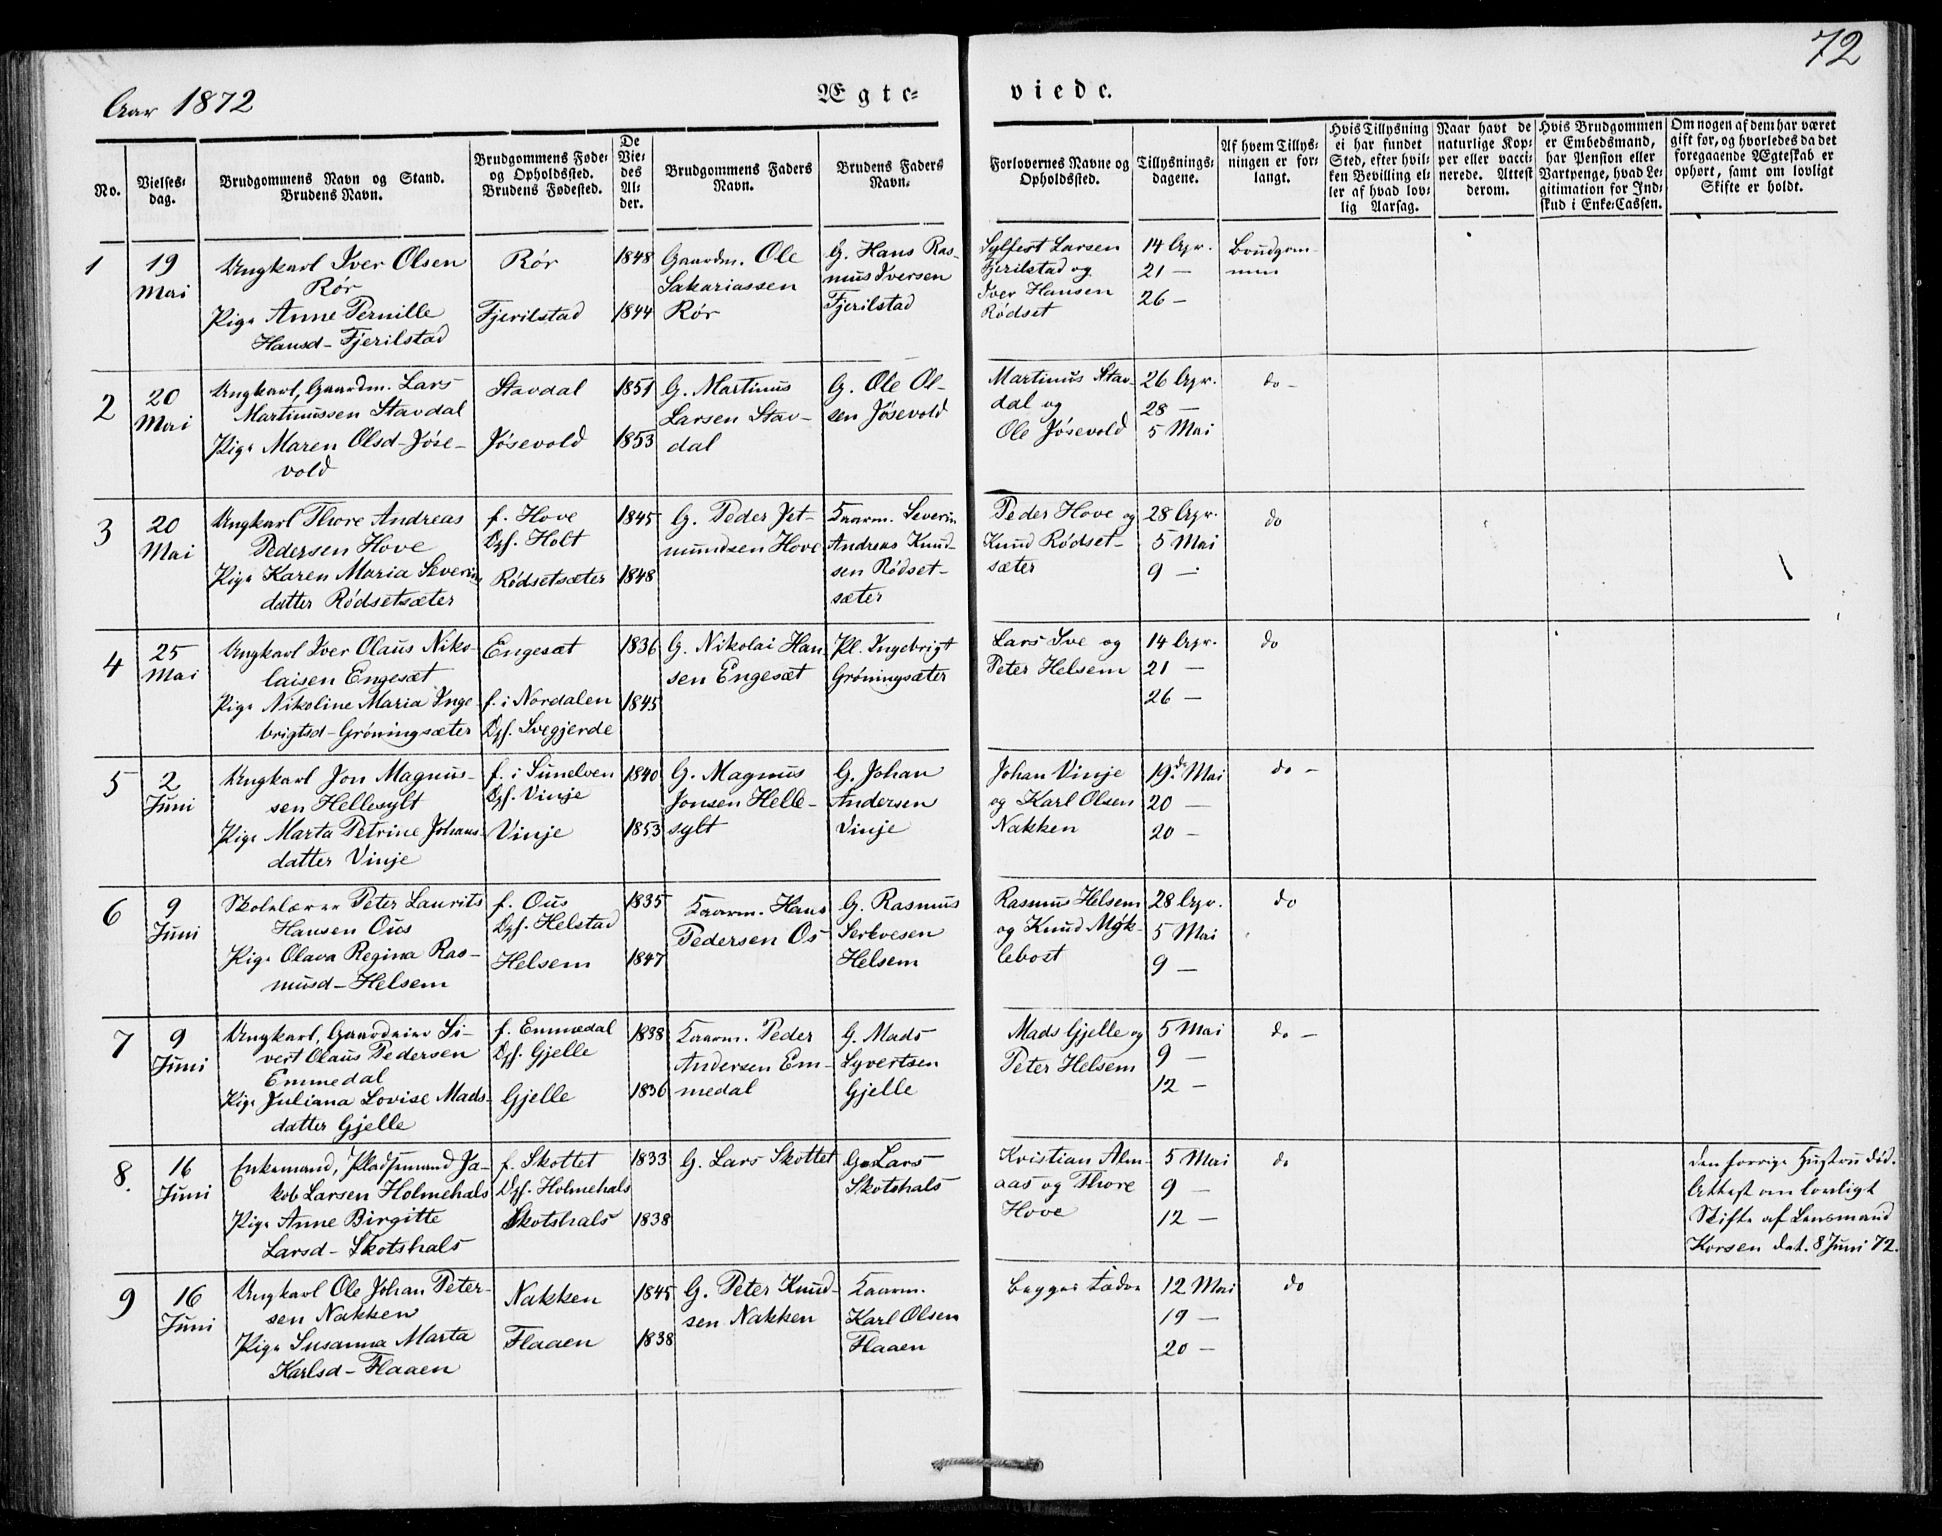 72
Aar 1872
Ægte-
viede.
No.
Vielses-
dag.
Brudgommens Navn og Stand.
Brudens Navn.
Brudgommens Føde-
og Opholdssted.
Brudens Fødested.
De
Vie-
des
Al-
der.
Brudgommens Faders
Navn.
Brudens Faders
Navn.
Forlovernes Navne og
Opholdssted.
Tillysnings-
dagene.
Af hvem Tillys-
ningen er for-
langt.
Hvis Tillysning
ei har fundet
Sted, efter hvil-
ken Bevilling el-
ler af hvad lov-
lig Aarsag.
Naar havt de
naturlige Kop-
per eller vacci-
nerede. Attest
derom.
Hvis Brudgommen
er Embedsmand,
har Pension eller
Vartpenge, hvad Le-
gitimation for Ind-
skud i Enke-Cassen.
Om nogen af dem har været
gift før, og hvorledes da det
foregaaende Ægteskab er
ophørt, samt om lovligt
Skifte er holdt.
1
19
Mai
Ungkarl Iver Olsen
Rör
Pige Anne Pernille
Hansd- Fjerilstad
Rör
Fjerilstad
1848
1844
Gaardm. Ole
Sakariassen
Rör
G. Hans Ras-
mus Iversen
Fjerilstad
Sylfest Larsen
Fjerilstad og
Iver Hansen
Rödset
14 Apr.
21 —
26 —
Brudgom-
men
2
20
Mai
Ungkarl, Gaardm. Lars
Martinussen Stavdal
Pige Maren Olsd- Jöse-
vold
Stavdal
Jösevold
1851
1853
G. Martinus
Larsen Stav-
dal
G. Ole Ol-
sen Jösevold
Martinus Stav-
dal og
Ole Jösevold
26 Apr.
28 —
5 Mai
do —
3
20
Mai
Ungkarl Thore Andreas
Pedersen Hove
Pige Karen Maria Severin
datter Rödsetsæter
f. Hove
Opf. Holt
Rödsetsæter
1845
1848
G. Peder Jet-
mundsen Hove
Kaarm. Severin
Andreas Knud-
sen Rödset-
sæter
Peder Hove og
Knud Rödset-
sæter
28 Apr.
5 Mai
9 —
do
4
25
Mai
Ungkarl Iver Olaus Niko-
laisen Engesæt
Pige Nikoline Maria Inge
brigtsd- Gröningsæter
Engesæt
f. i Nordalen
Opf. Svegjerde
1836
1845
G. Nikolai Han-
sen Engesæt
Pl. Ingebrigt
Gröningsæter
Lars Sve og
Peter Helsem
14 Apr.
21 —
26 —
do
5
2
Juni
Ungkarl Jon Magnus-
sen Hellesylt
Pige Marta Petrine Johans-
datter Vinje
f. i Sunelven
Opf. Vinje
Vinje
1840
1853
G. Magnus
Jonsen Helle-
sylt
G. Johan
Andersen
Vinje
Johan Vinje
og Karl Olsen
Nakken
19de Mai
20 —
20 —
do —
6
9
Juni
Skolelærer Peter Laurits
Hansen Ous
Pige Olava Regina Ras-
musd- Helsem
f. Ous
Opf. Helstad
Helsem
1835
1847
Kaarm. Hans
Pedersen Os
G. Rasmus
Serkvesen
Helsem
Rasmus Helsem
og Knud Myk-
lebost
28 Apr.
5 Mai
9 —
do
7
9
Juni
Ungkarl, Gaardeier Si-
vert Olaus Pedersen
Emmedal
Pige Juliana Lovise Mads-
datter Gjelle
f. Emmedal
Opf. Gjelle
Gjelle
1838
1836
Kaarm. Peder
Andersen Em-
medal
G. Mads
Syvertsen
Gjelle
Mads Gjelle og
Peter Helsem
5 Mai
9 —
12 —
do —
8.
16
Juni
Enkemand, Pladsemand Ja-
kob Larsen Holmehals
Pige Anne Birgitte
Larsd- Skotshals
f. Skottet
Opf. Holmehals
Skotshals
1833
1838
G. Lars Skottet
G. Lars
Skotshals
Kristian Alm-
aas og Thore
Hove
5 Mai
9 —
12 —
do
den forrige Hustru död.
Attest om lovligt
Skifte af Lensmand
Korsen dat. 8 Juni 72.
9
16
Juni
Ungkarl Ole Johan Peter-
sen Nakken
Pige Susanna Marta
Karlsd- Flaaen
Nakken
Flaaen
1845
1838
G. Peter Knud-
sen Nakken
Kaarm.
Karl Olsen
Flaaen
Begges Fædre
12 Mai
19 —
20 —
do